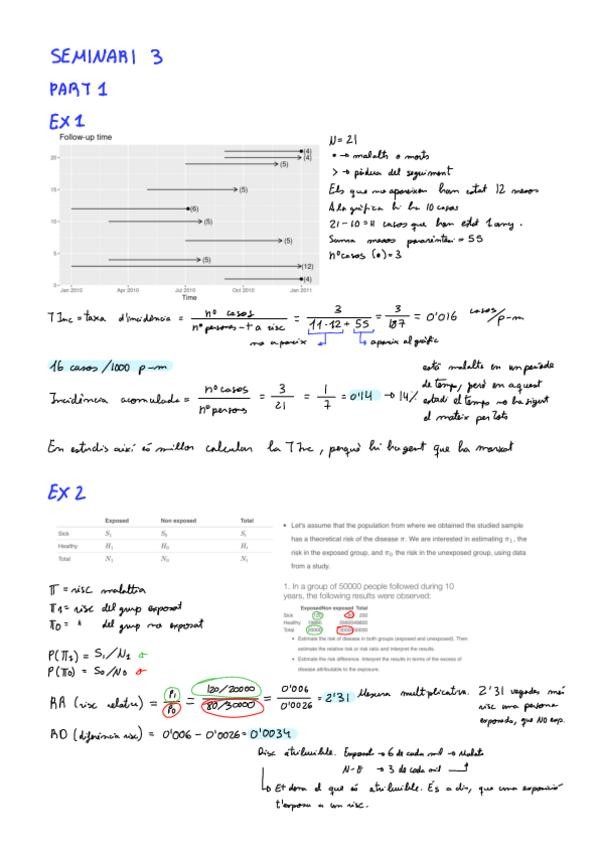 SEMINARI 3
PART 1
EX 1
Follow-up time
(4)
20
(4)
(5)
15
(5)
(6)
10
(5)
(5)
5
(5)
(12)
0
(4)
Jan 2010 Apr 2010 Jul 2010 Oct 2010 Jan 2011
Time
N = 21
• → malalts o morts
> → pèrdua del seguiment
Els que no apareixen han estat 12 mesos
A la gràfica hi ha 10 casos
21 - 10 = 11 casos que han estat 1 any.
Suma mesos parèntesi = 55
nº casos (•) = 3
T Inc = taxa d'incidència = nº casos / nº persones - t a risc = 3 / 11·12 + 55 = 3 / 187 = 0'016 casos/p-m
no apareix apareix al gràfic
16 casos / 1000 p-m
Incidència acumulada = nº casos / nº persons = 3 / 21 = 1 / 7 = 0'14 → 14%
està malalts en un període
de temps, però en aquest
estudi el temps no ha sigut
el mateix per tots
En estudis així és millor calcular la T Inc, perquè hi ha gent que ha marxat
EX 2
Exposed Non exposed Total
Sick S₁ S₀ S
Healthy H₁ H₀ H
Total N₁ N₀ N
• Let's assume that the population from where we obtained the studied sample
has a theoretical risk of the disease π. We are interested in estimating π₁, the
risk in the exposed group, and π₀ the risk in the unexposed group, using data
from a study.
1. In a group of 50000 people followed during 10
years, the following results were observed:
Exposed Non exposed Total
Sick
Healthy
Total 20000
• Estimate the risk of disease in both groups (exposed and unexposed). Then
estimate the relative risk or risk ratio and interpret the results.
• Estimate the risk difference. Interpret the results in terms of the excess of
disease attributable to the exposure.
π = risc malaltia
π1 = risc del grup exposat
π0 = " del grup no exposat
P(π1) = S1/N1
P(π0) = S0/N0
RR (risc relatiu) = P1 / P0 = 120/20000 / 80/30000 = 0'006 / 0'0026 = 2'31 Mesura multiplicativa. 2'31 vegades més
risc una persona
exposada, que NO exp.
RD (diferència risc) = 0'006 - 0'0026 = 0'0034
Risc atribuible. Exposat → 6 de cada mil → Malalts
N-E → 3 de cada mil
Et dona el que és atribuible. És a dir, que una exposició
t'exposa a un risc.